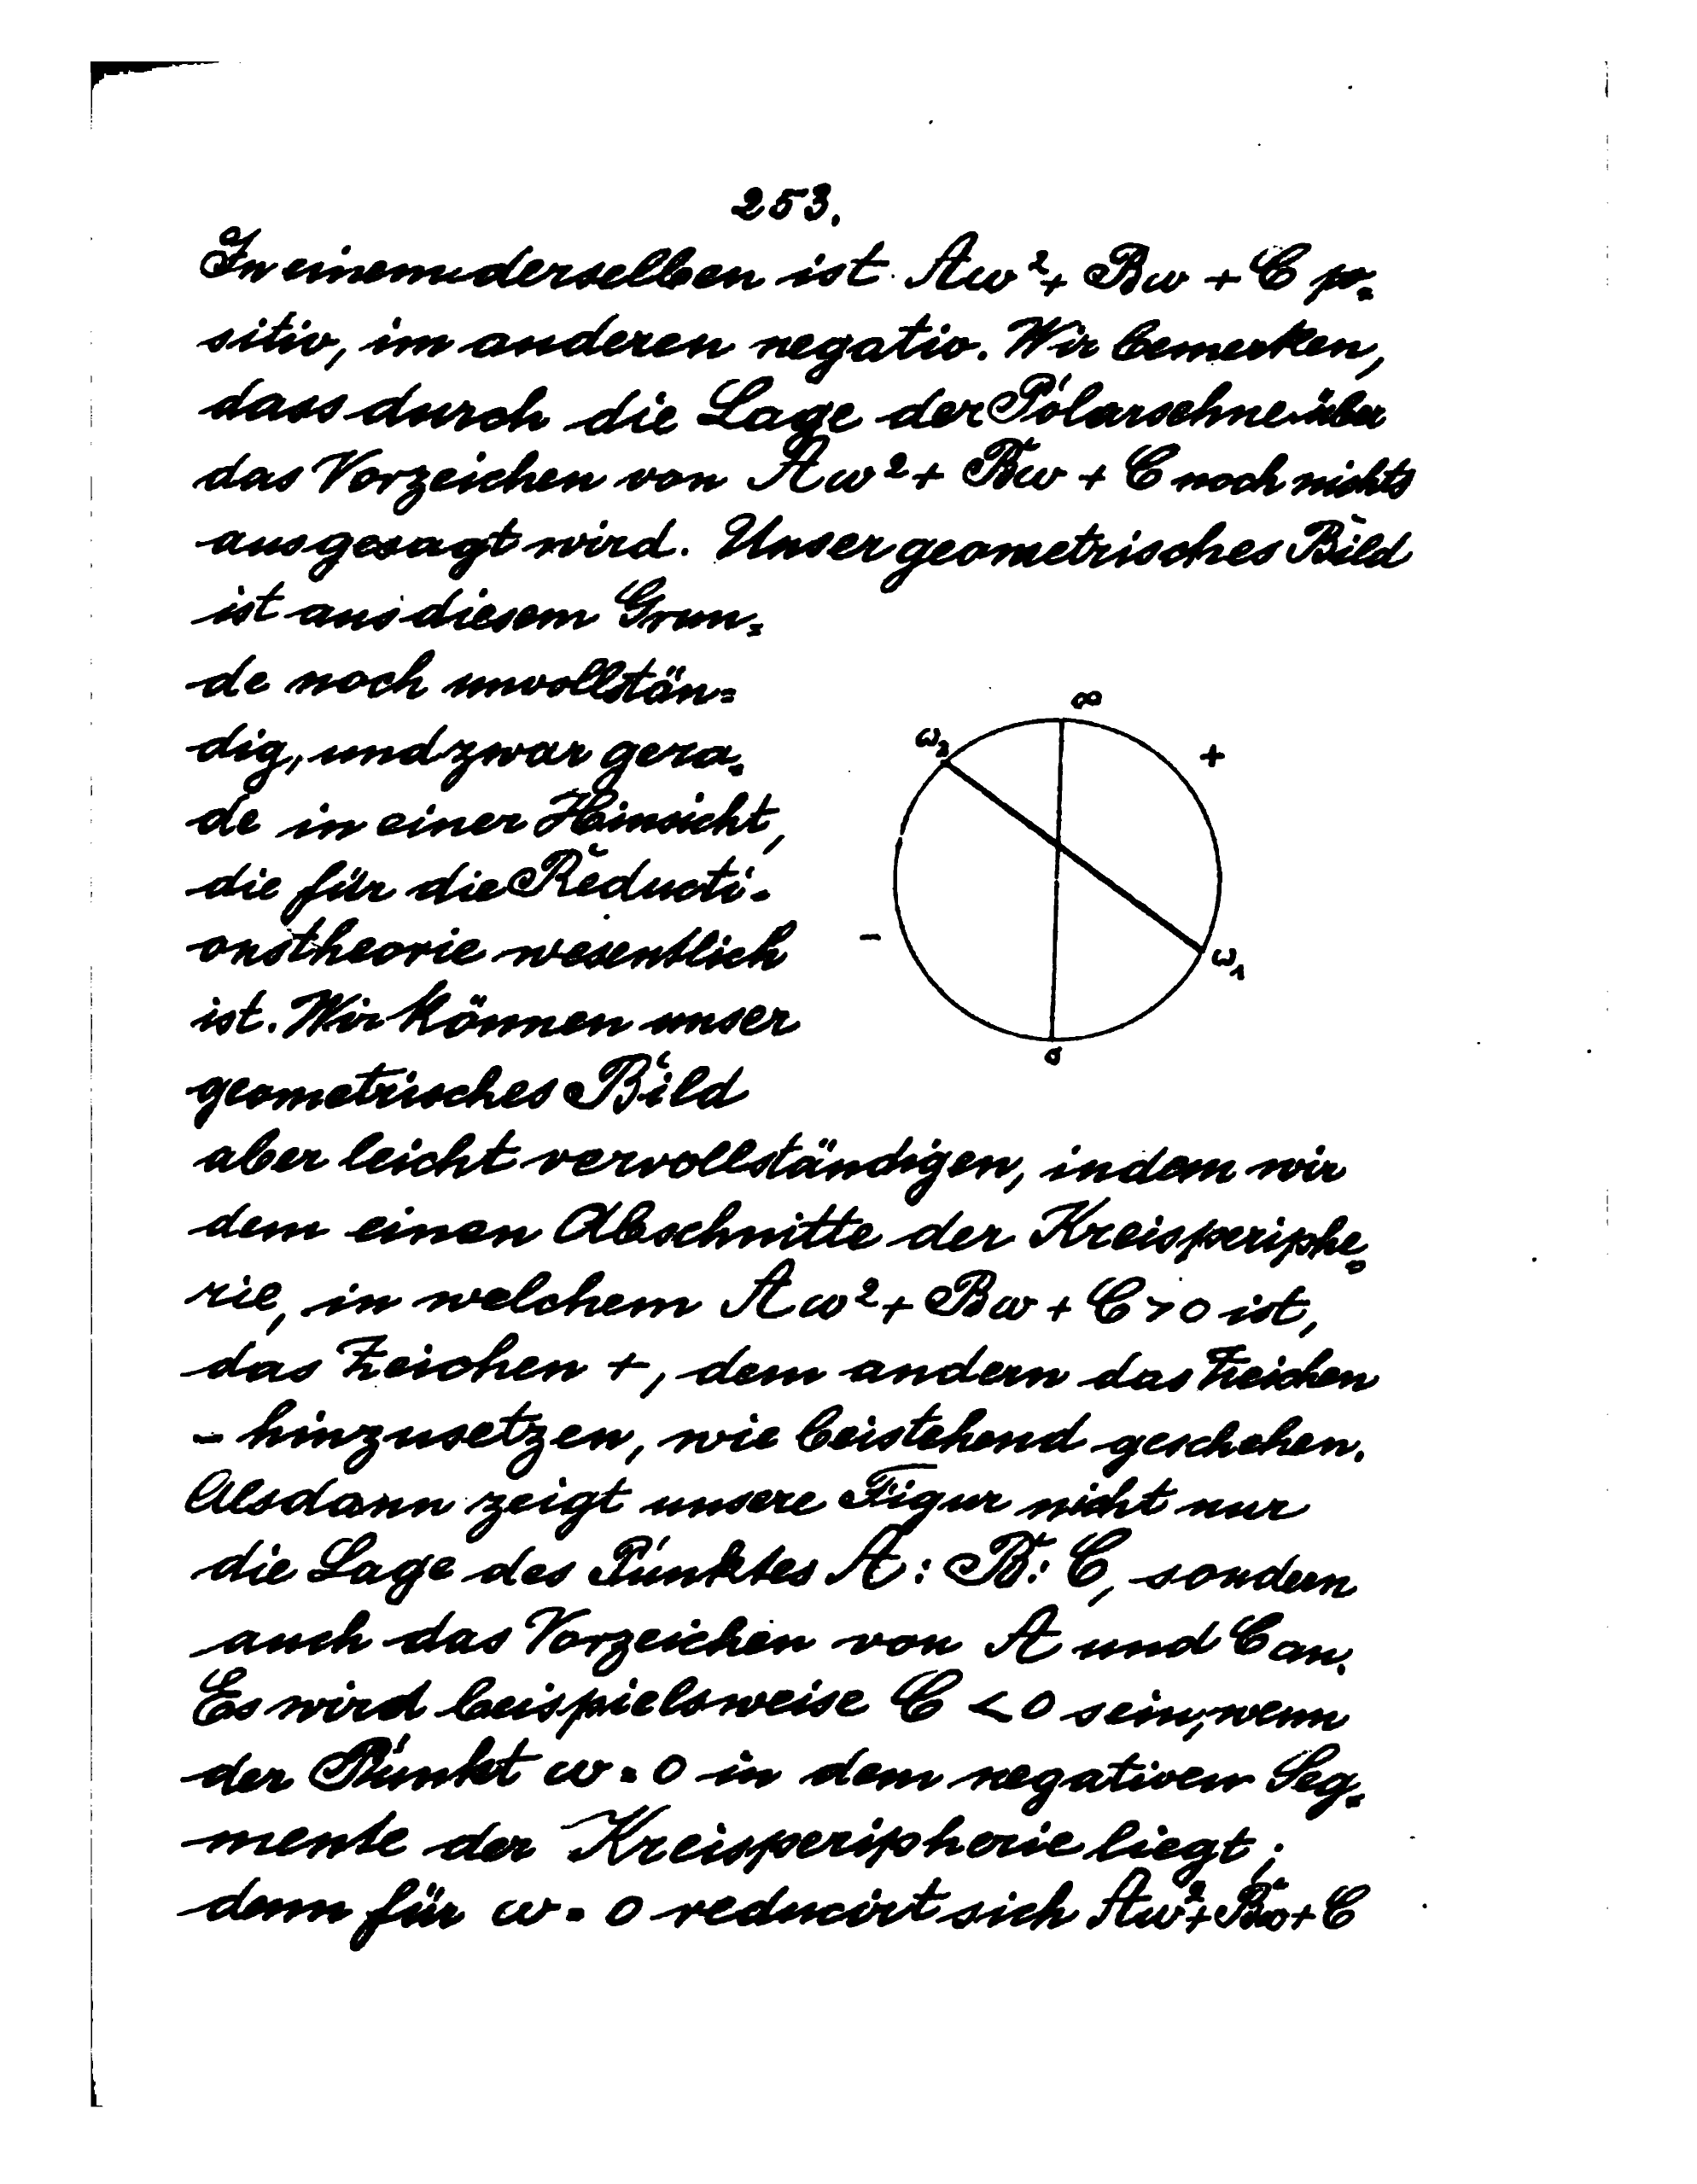 253.
In einem derselben ist Aω²+ Bω + C po=
sitiv, im anderen negativ. Wir bemerken,
dass durch die Lage der Polarsehne über
das Vorzeichen von Aω²+ Bω + C noch nichts
ausgesagt wird. Unser geometrisches Bild
ist aus diesem Grun=
de noch unvollstän=
dig, und zwar gera=
de in einer Hinsicht,
die für die Reducti=
onstheorie wesentlich
ist. Wir können unser
geometrisches Bild
∞
ω₂
+
-
ω₁
0
aber leicht vervollständigen, indem wir
dem einen Abschnitte der Kreisperiphe=
rie, in welchem Aω²+ Bω + C > 0 ist,
das Zeichen +, dem andern das Zeichen
- hinzusetzen, wie beistehend geschehen.
Alsdann zeigt unsere Figur nicht nur
die Lage des Punktes A : B : C, sondern
auch das Vorzeichen von A und C an.
Es wird beispielsweise C < 0 sein, wenn
der Punkt ω = 0 in dem negativen Seg=
mente der Kreisperipherie liegt;
denn für ω = 0 reducirt sich Aω²+Bω+C